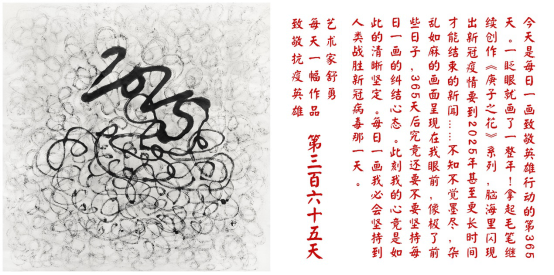 2025
今天是每日一画致敬英雄行动的第365
天。一眨眼就画了一整年！拿起毛笔继
续创作《庚子之花》系列，脑海里闪现
出新冠疫情要到2025年甚至更长时间
才能结束的新闻……不知不觉墨尽，杂
乱如麻的画面呈现在我眼前，像极了前
些日子，365天后究竟还要不要坚持每
日一画的纠结心态。此刻我的心竟是如
此的清晰坚定。每日一画我必会坚持到
人类战胜新冠病毒那一天。
艺术家舒勇
每天一幅作品
致敬抗疫英雄
第三百六十五天